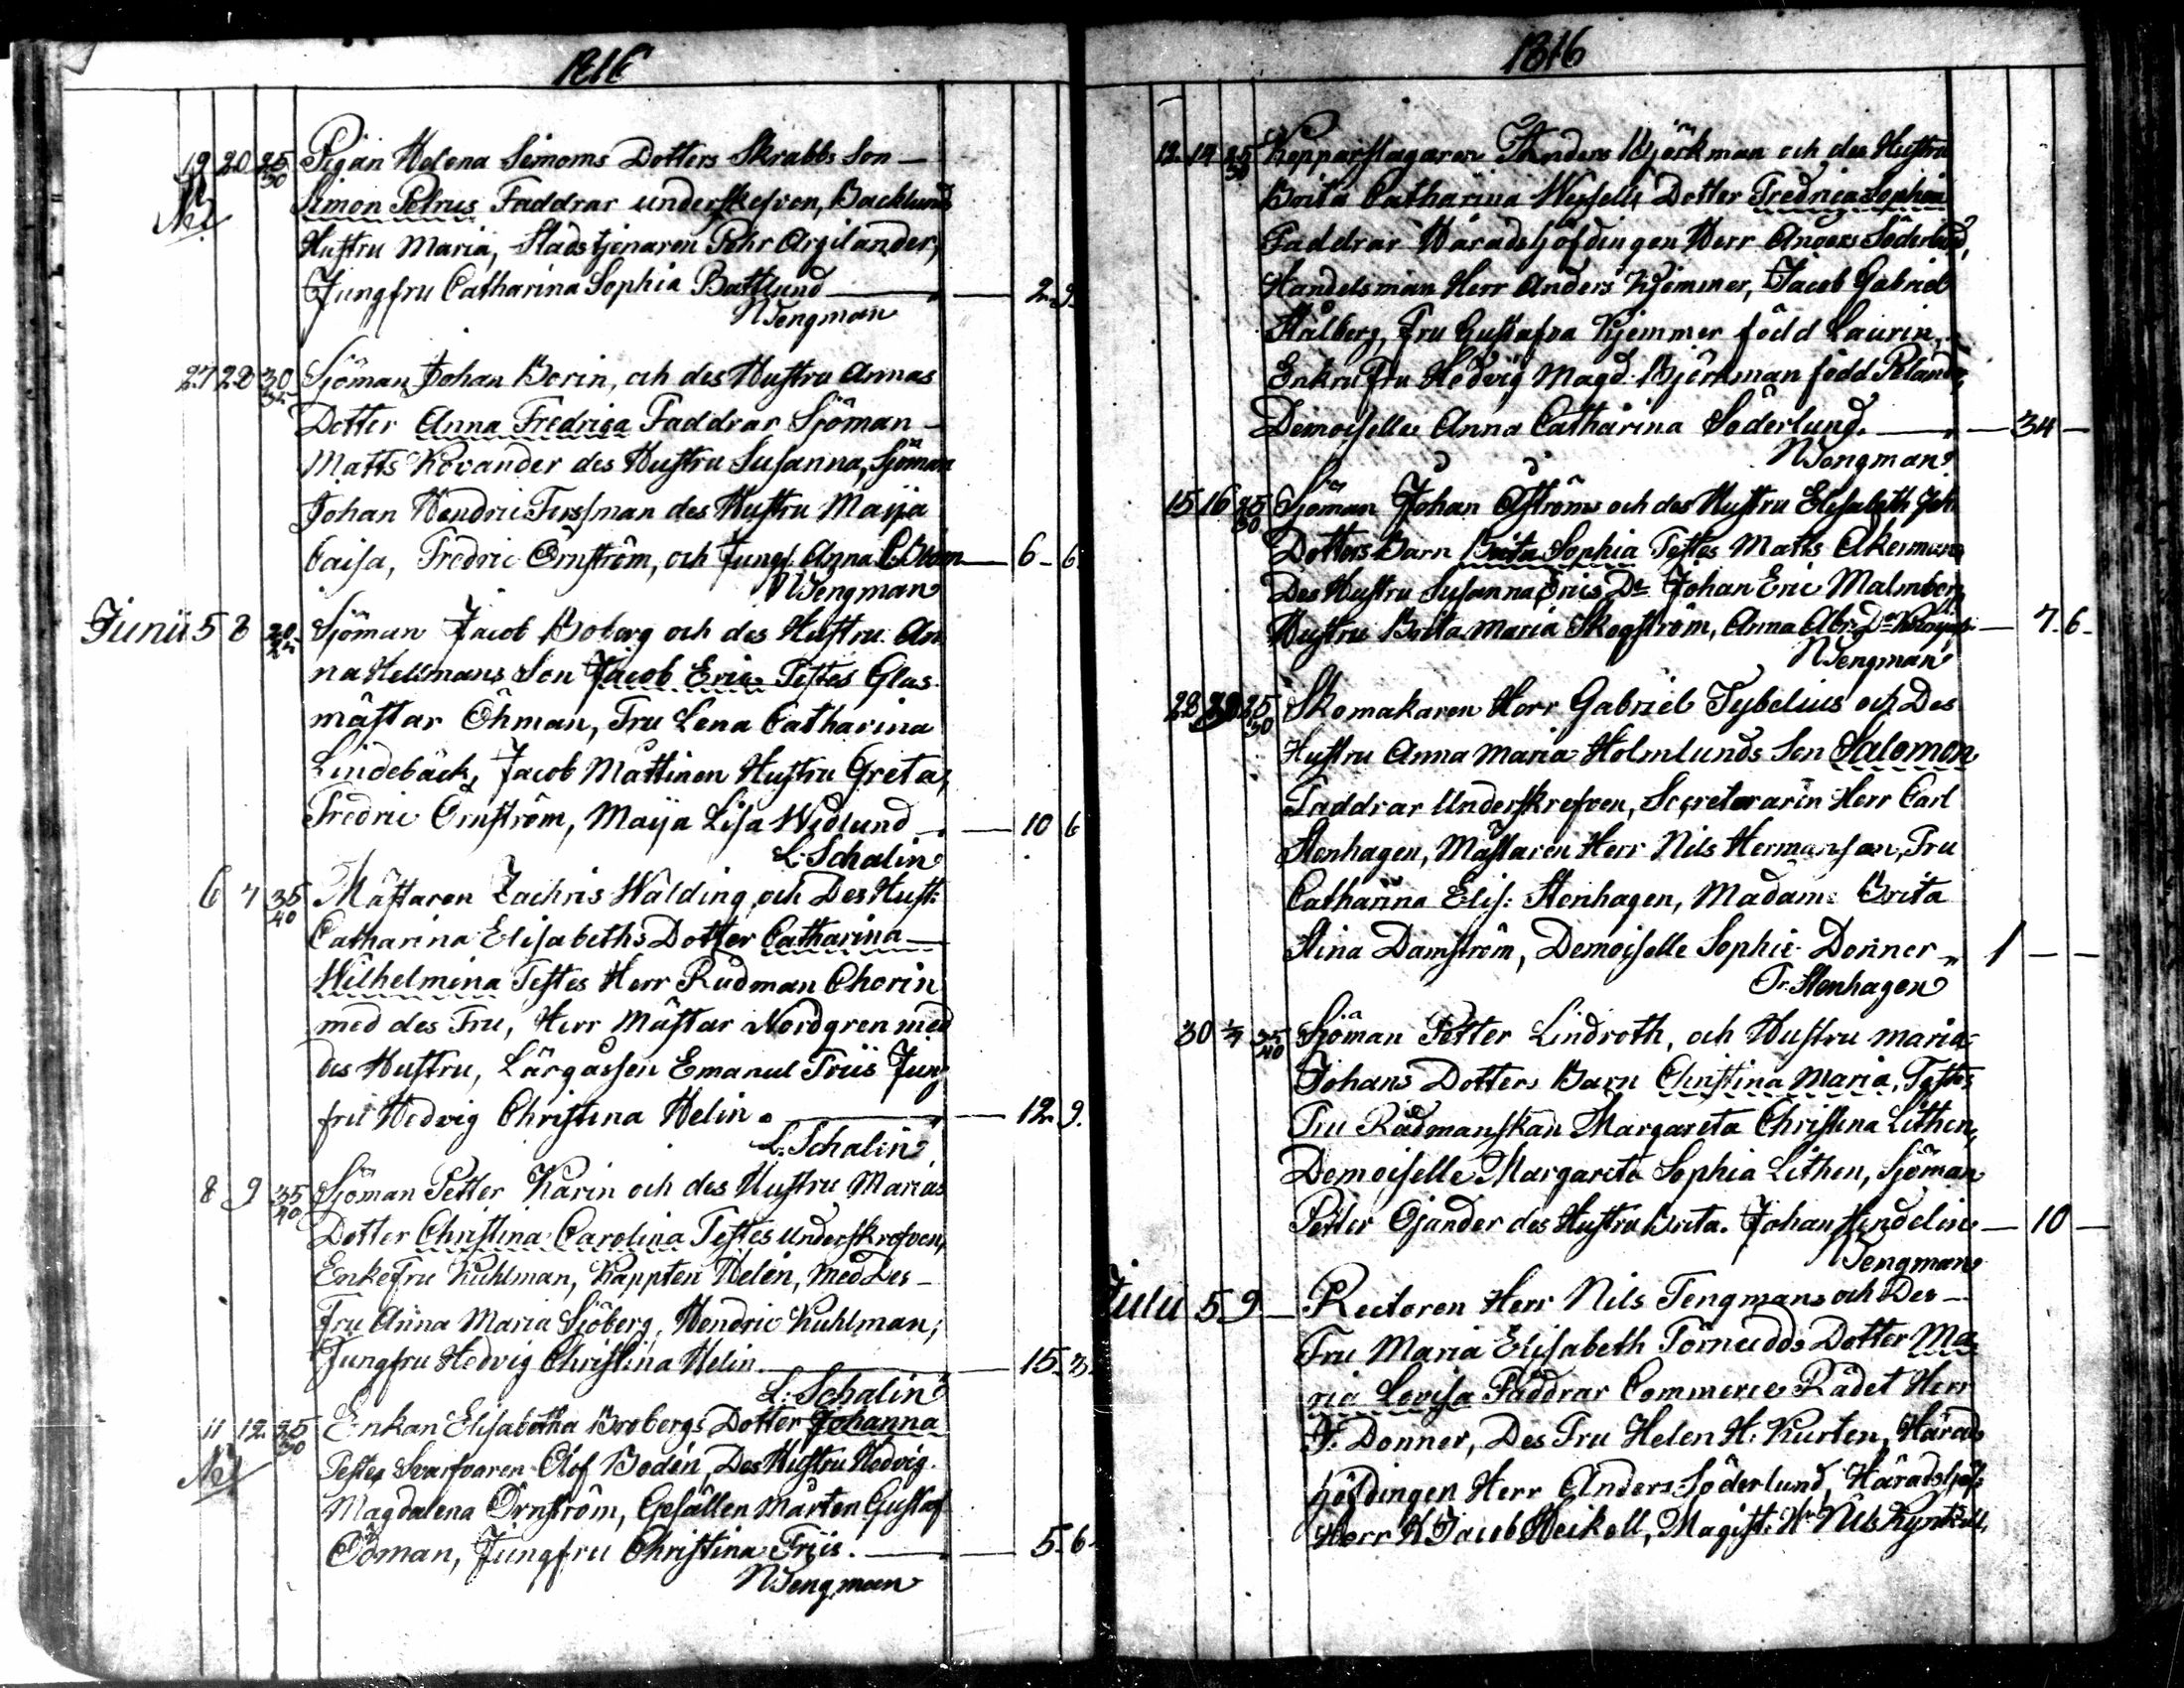 1816
19 20 25/30 Pigan Helena Simoms Dotters Skrabbs Son —
Simon Petrus Faddrar underskefven, Backlunds
Hustru Maria, Stadstjenaren Pehr Argilander,
Jungfru Catharina Sophia Battlund — 2. 9.
NTengman
27 28 30/35 Sjöman Johan Borin, och des Hustru Annas
Dotter Anna Fredrica Faddrar Sjöman —
Matts Kovander des Hustru Susanna, Sjöman
Johan Hendric Forssman des Hustru Maija
Caisa, Fredric Örnström, och Jungf. Anna C. Blom — 6 - 6
NTengman
Junii 5 8 20/25 Sjöman Jacob Boberg och des Hustru An
na Hellmans Son Jacob Eric Testes Glas
mästar Öhman, Fru Lena Catharina
Lindebäck, Jacob Mattinen Hustru Greta,
Fredric Örnström, Maija Lisa Widlund — 10 6
L: Schalin
6 7 35/40 Mästaren Zachris Wälding, och Des Hust:
Catharina Elisabeths Dotter Catharina —
Wilhelmina Testes Herr Rudman Chorin
med des Fru, Herr Mästar Nordgren med
des Hustru, Lärgåssen Emanuel Friis Jung
fru Hedvig Christina Helin — 12. 9.
L: Schalin
8 9 35/40 Sjöman Petter Karin och des Hustru Marias
Dotter Christina Carolina Testes Underskrefven,
Enkefru Kuhlman, Kappten Helen, med Des —
Fru Anna Maria Sjöberg, Hendric Kuhlman,
Jungfru Hedvig Christina Helin — 15. 3.
L: Schalin
11 12. 25/30 Enkan Elisabetha Brobergs Dotter Johanna
Testes Svarfvaren Olof Bodén, Des Hustru Hedvig
Magdalena Örnström, Gesällen Mårten Gustaf
Ödman, Jungfru Christina Friis. — 5. 6.
NTengman
1816
12. 14 25/30 Kopparslagaren Anders Björkman och des Hustru
Brita Catharina Wessells Dotter Fredrica Sophia
Faddrar Häradshöfdingen Herr Anders Söderlund,
Handelsman Herr Anders Kjemmer, Jacob Gabriel
Stålberg, Fru Gustafva Kjemmer född Laurin,
Enkefru Hedvig Magd. Björkman född Polander,
Demoiselle Anna Catharina Söderlund. — 34 —
NTengman
15 16 25/30 Sjöman Johan Åströms och des Hustru Elisabeth Joh
Dotters Barn Brita Sophia Testes Matts Åkerman
Des Hustru Susanna Erics Dr Johan Eric Malmberg
Hustru Brita Maria Skogström, Anna Abr. Dr — 7. 6.
NTengman
28 25/30 Skomakaren Herr Gabriel Tybelius och Des
Hustru Anna Maria Holmlunds Son Salomon
Faddrar Underskrefven, Secreterarin Herr Carl
Stenhagen, Mästaren Herr Nils Hermansson, Fru
Catharina Elis: Stenhagen, Madame Brita
Stina Damström, Demoiselle Sophie Donner — 1 — —
Fr. Stenhagen
30 35/40 Sjöman Petter Lindroth, och Hustru Maria
Johans Dotters Barn Christina Maria, Testes
Fru Rådmanskan Margareta Christina Lithen,
Demoiselle Margareta Sophia Lithen, Sjöman
Petter Öjander des Hustru Brita. Johan Hendelin — 10 —
NTengman
Julii 5 9 — Rectoren Herr Nils Tengmans och Des —
Fru Maria Elisabeth Törnudds Dotter Ma
ria Lovisa Faddrar Commerce Rådet Herr
J. Donner, Des Fru Helen H: Kurten, Härads
höfdingen Herr Anders Söderlund, Häradshöf:
Herr H Jacob Heikell, Magist: Hr Nils Kynzell,